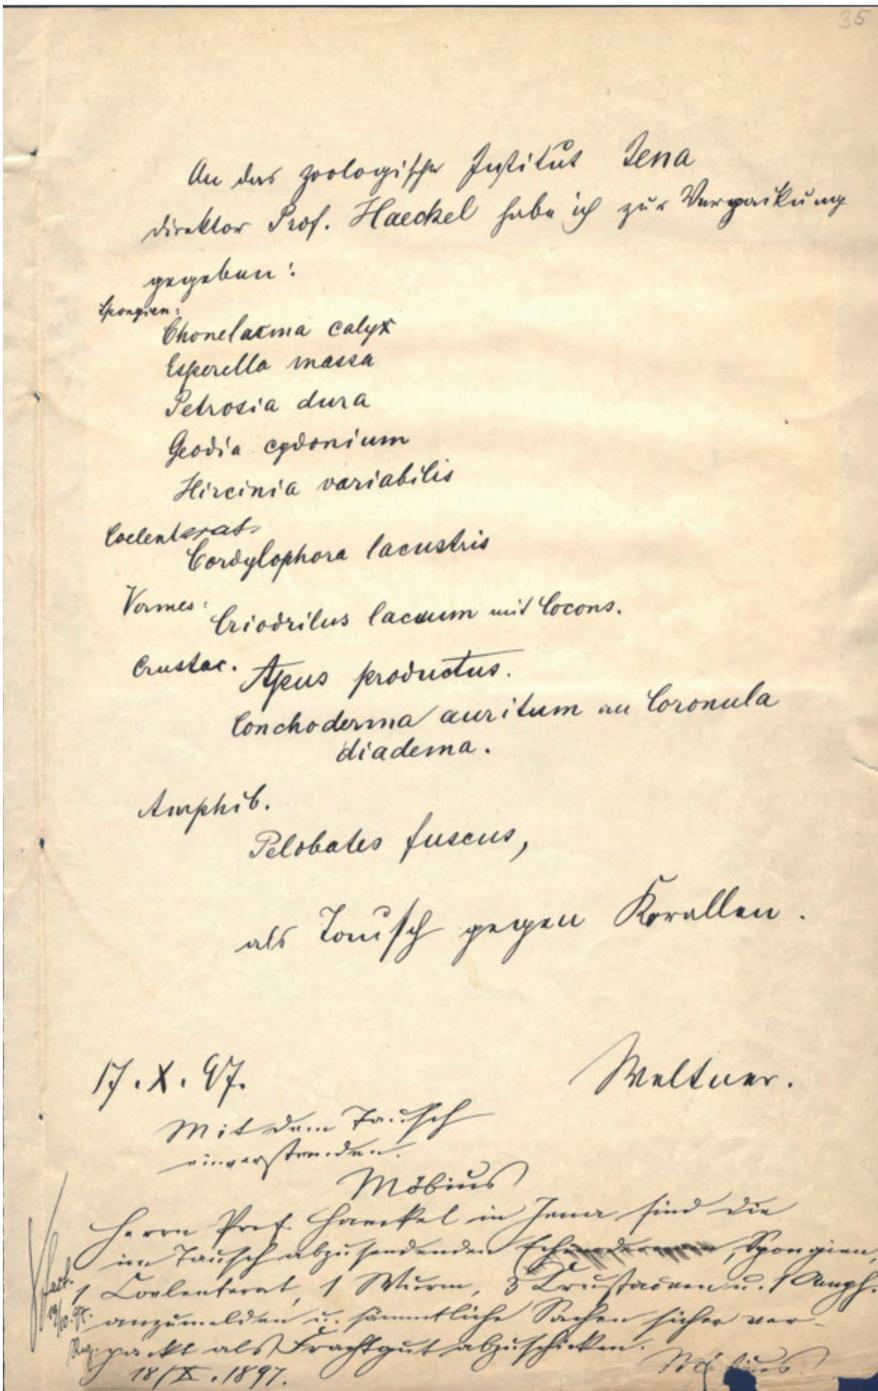 35
An das zoologische Institut Jena
Direktor Prof. Haeckel habe ich zur Verpackung
gegeben:
Spongien:
Chonelasma calyx
Esperella massa
Petrosia dura
Geodia cydonium
Hircinia variabilis
Coelenterat.
Cordylophora lacustris
Vermes: Criodrilus lacuum mit Cocons.
Crustac. Apus productus.
Conchoderma auritum an Coronula
diadema.
Amphib.
Pelobates fuscus,
als Tausch gegen Korallen.
17.X.97. Weltner.
Mit dem Tausch
einverstanden.
Möbius
Herrn Prof. Haeckel in Jena sind die
im Tausch abzusendenden Spongien,
1 Coelenterat, 1 Wurm, 3 Crustaceen u. 1 Amph.
anzumelden u. sämmtliche Sachen sicher ver-
packt als Frachtgut abzuschicken.
18/X.1897. Möbius